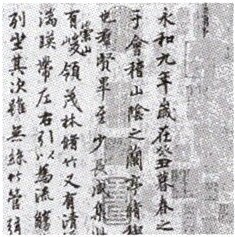 永和九年歲在癸丑暮春之
于會稽山陰之蘭亭脩禊
也羣賢畢至少長咸集
有崇山峻領茂林脩竹又有清
湍暎帶左右引以為流觴
列坐其次雖無絲竹管弦